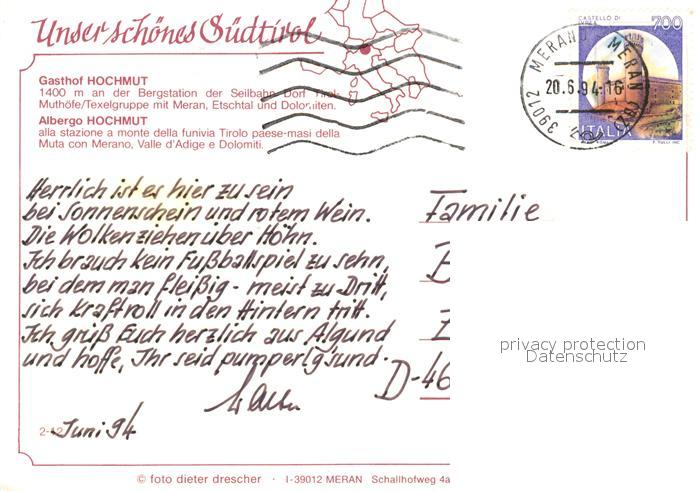 Unser schönes Südtirol
Gasthof HOCHMUT
1400 m an der Bergstation der Seilbahn Dorf Tirol-
Muthöfe/Texelgruppe mit Meran, Etschtal und Dolomiten.
Albergo HOCHMUT
alla stazione a monte della funivia Tirolo paese-masi della
Muta con Merano, Valle d'Adige e Dolomiti.
CASTELLO DI
700
ITALIA
39012 MERANO MERAN
20.6.94-16
Herrlich ist es hier zu sein
bei Sonnenschein und rotem Wein.
Die Wolken ziehen über Höhn.
Ich brauch kein Fußballspiel zu sehn,
bei dem man fleißig - meist zu Dritt,
sich kraftvoll in den Hintern tritt.
Ich grüß Euch herzlich aus Algund
und hoffe, Ihr seid pumperlg'sund.
Juni 94
Familie
D-46
privacy protection
Datenschutz
© foto dieter drescher · I-39012 MERAN Schallhofweg 4a